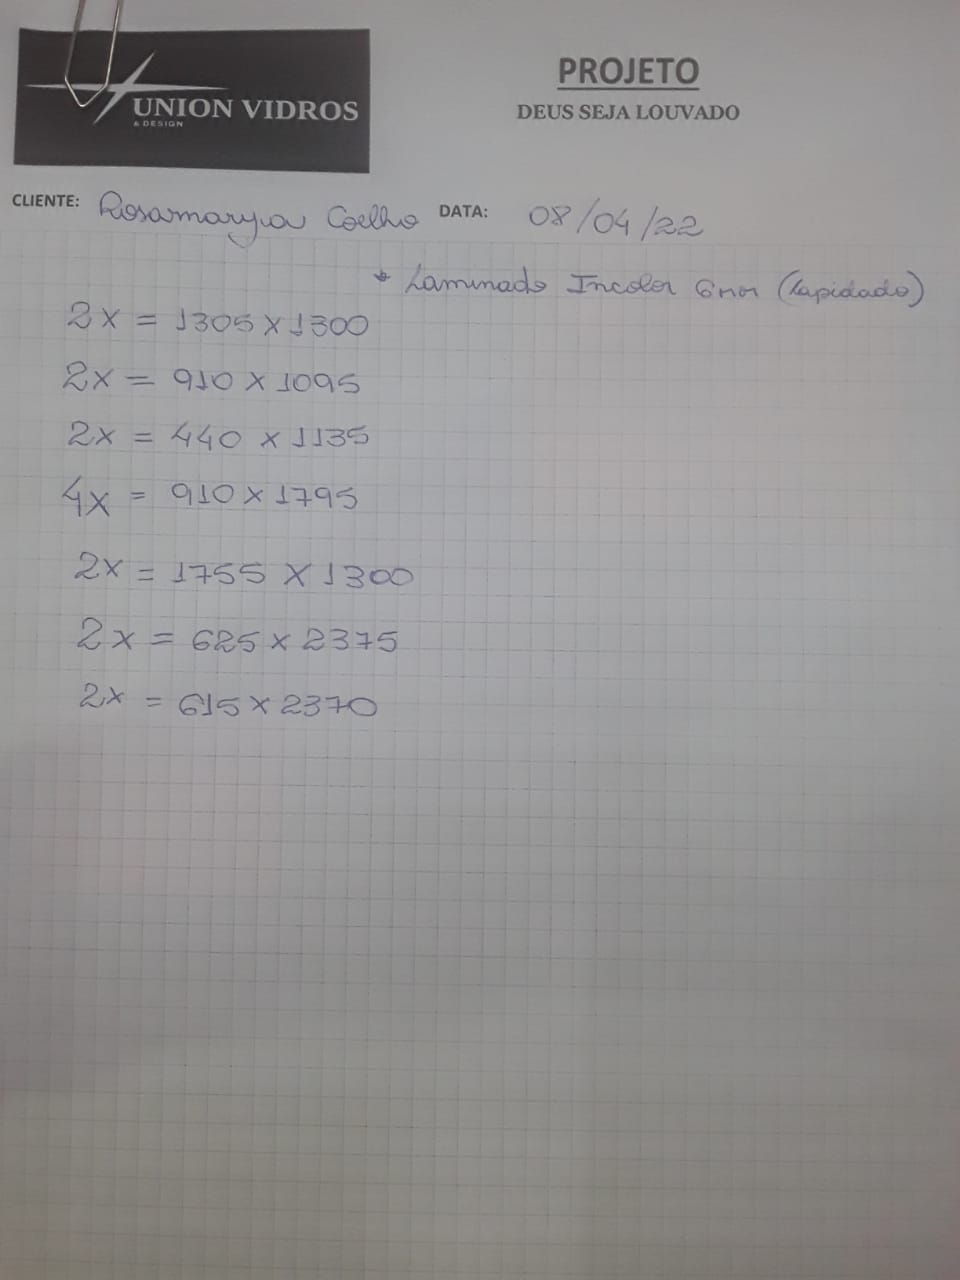 UNION VIDROS
& DESIGN
PROJETO
DEUS SEJA LOUVADO
CLIENTE: Rosamaryia Coelho DATA: 08/04/22
* Laminado Incolor 6mm (Lapidado)
2x = 1305 x 1300
2x = 910 x 1095
2x = 440 x 1135
4x = 910 x 1795
2x = 1755 x 1300
2x = 625 x 2375
2x = 615 x 2370